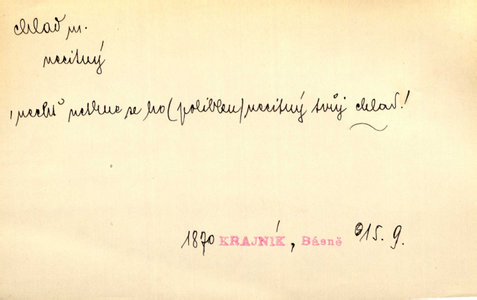 chlad m.
necitný
nechť netkne se ho (políbku) necitný tvůj chlad!
1870 KRAJNÍK, Básně 15. 9.